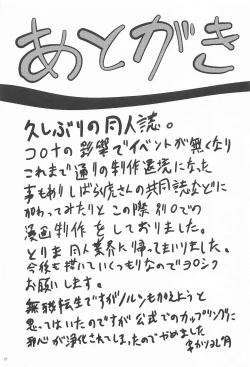 あとがき
久しぶりの同人誌。
コロナの影響でイベントが無くなり
これまで通りの制作環境になった
事もありしばらく虎さんの共同誌などに
加わってみたりと この際 別口での
漫画制作をしておりました。
とりま同人業界に帰ってまいりました。
今後も描いていくつもりなのでヨロシク
お願いします。
無職転生ですがノルンもかえようと
思っていたのですが 公式でのカップリングに
邪心が浄化されてしまったのでやめました